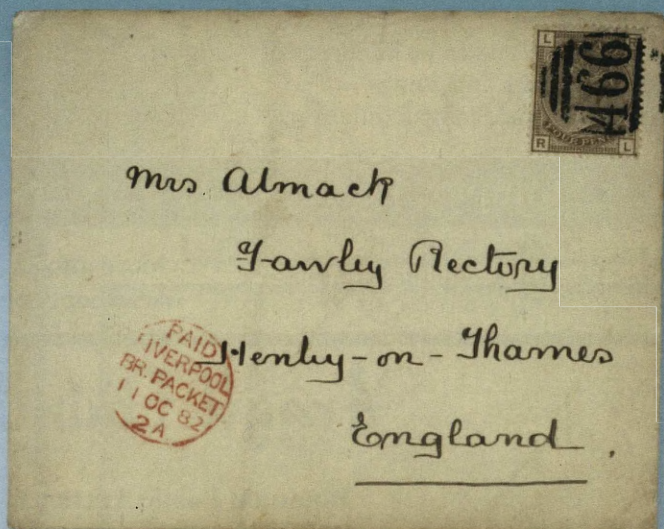 L
466
FOUR PEN
R L
Mrs. Almack
Fawley Rectory
Henley-on-Thames
England.
PAID
LIVERPOOL
BR. PACKET
11 OC 82
2A